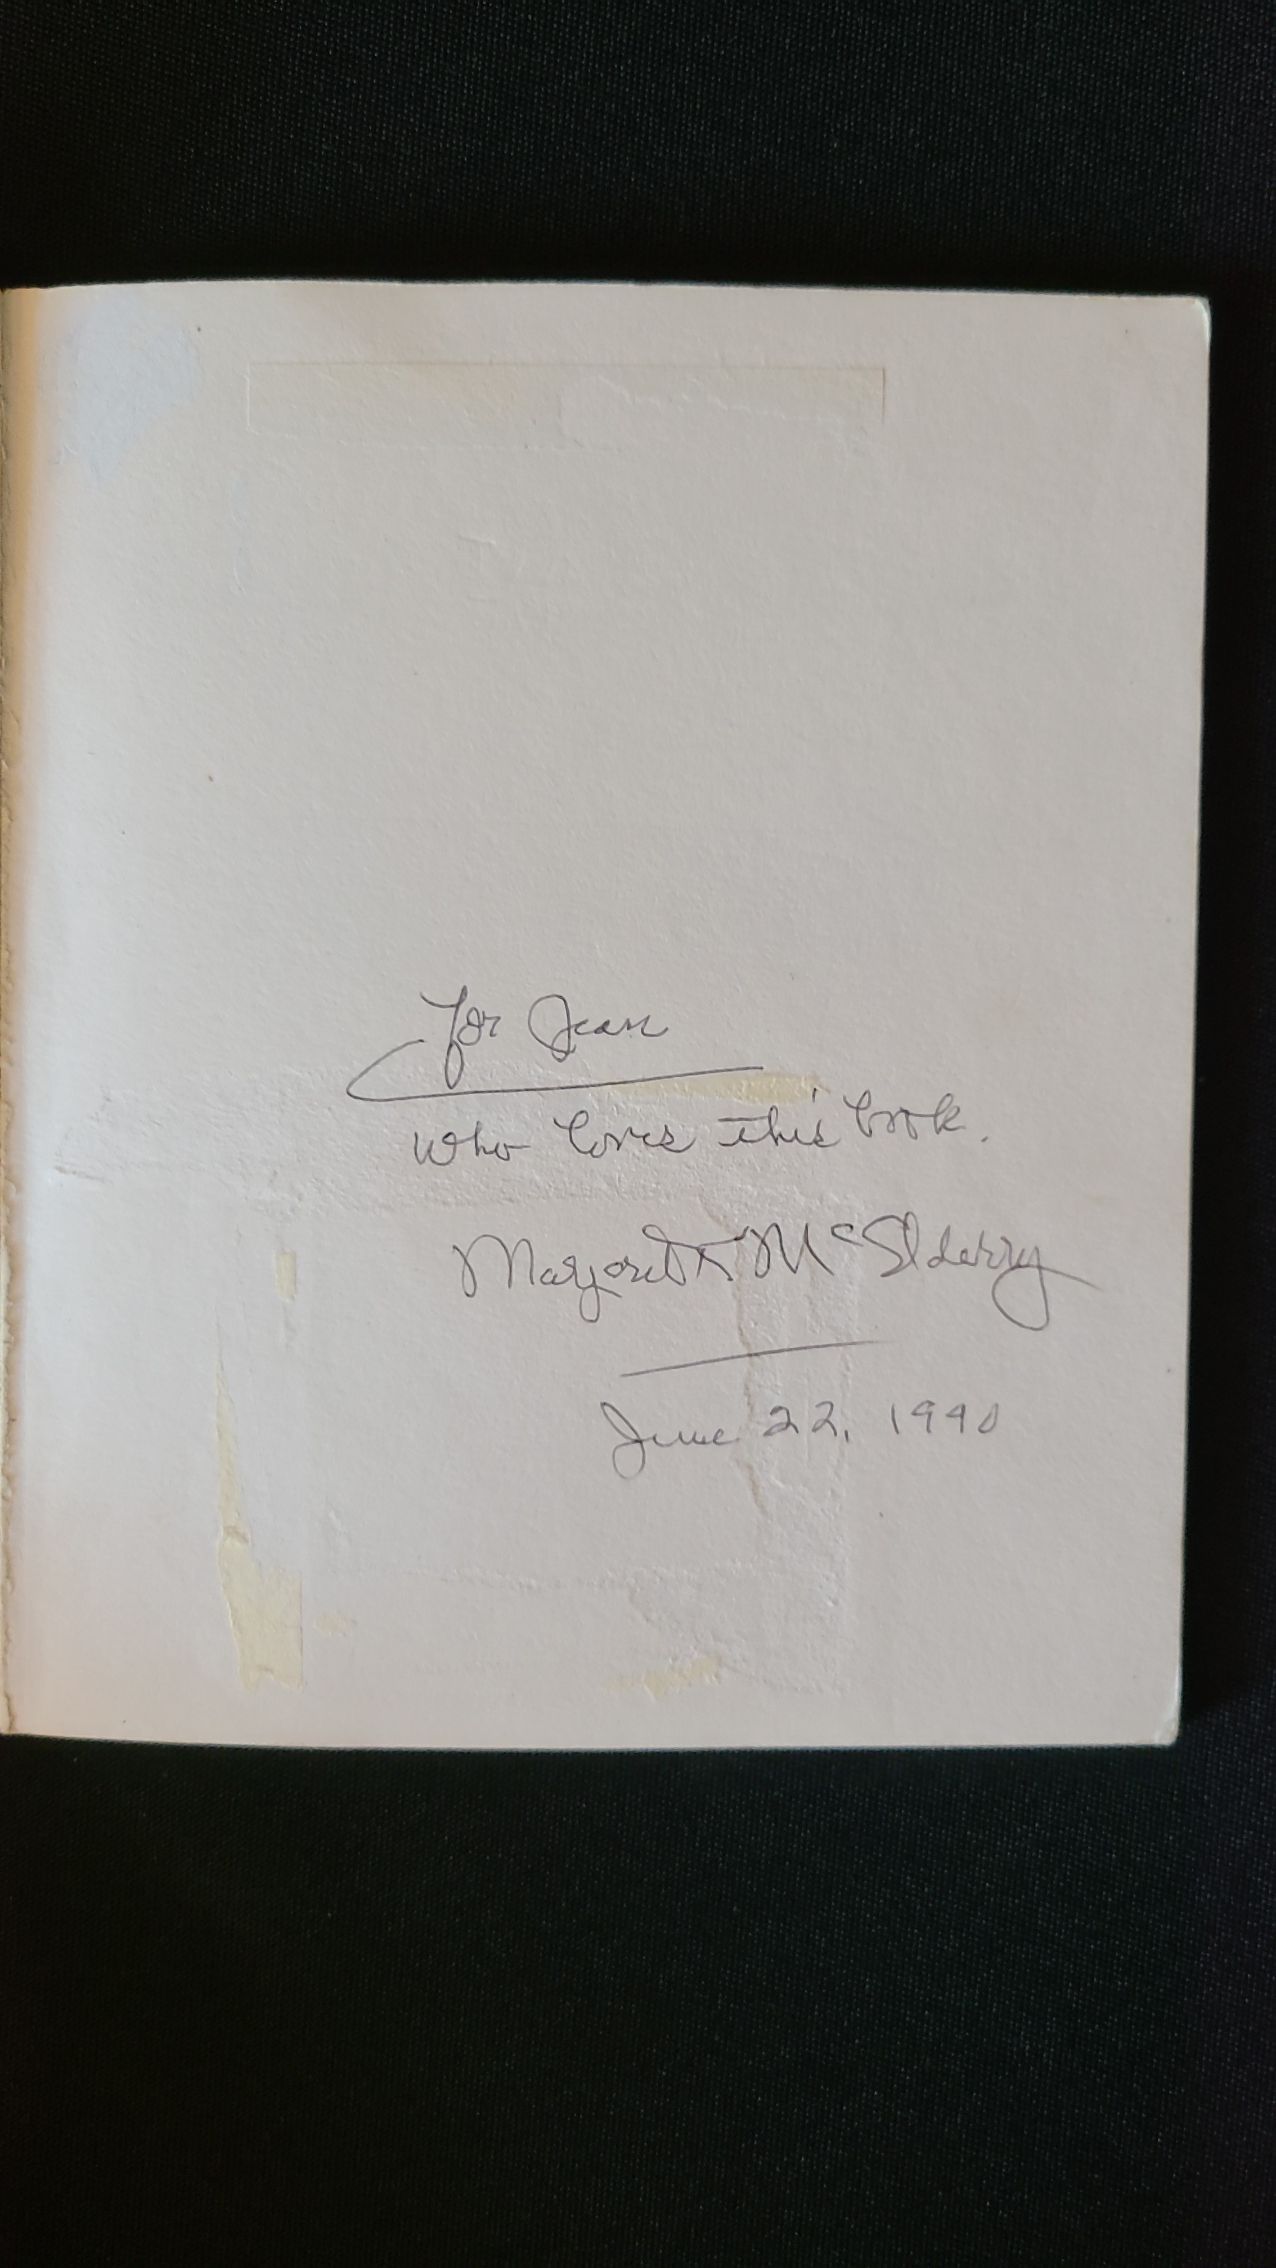 for Jean
who loves this book.
Margaret K McElderry
June 22, 1990